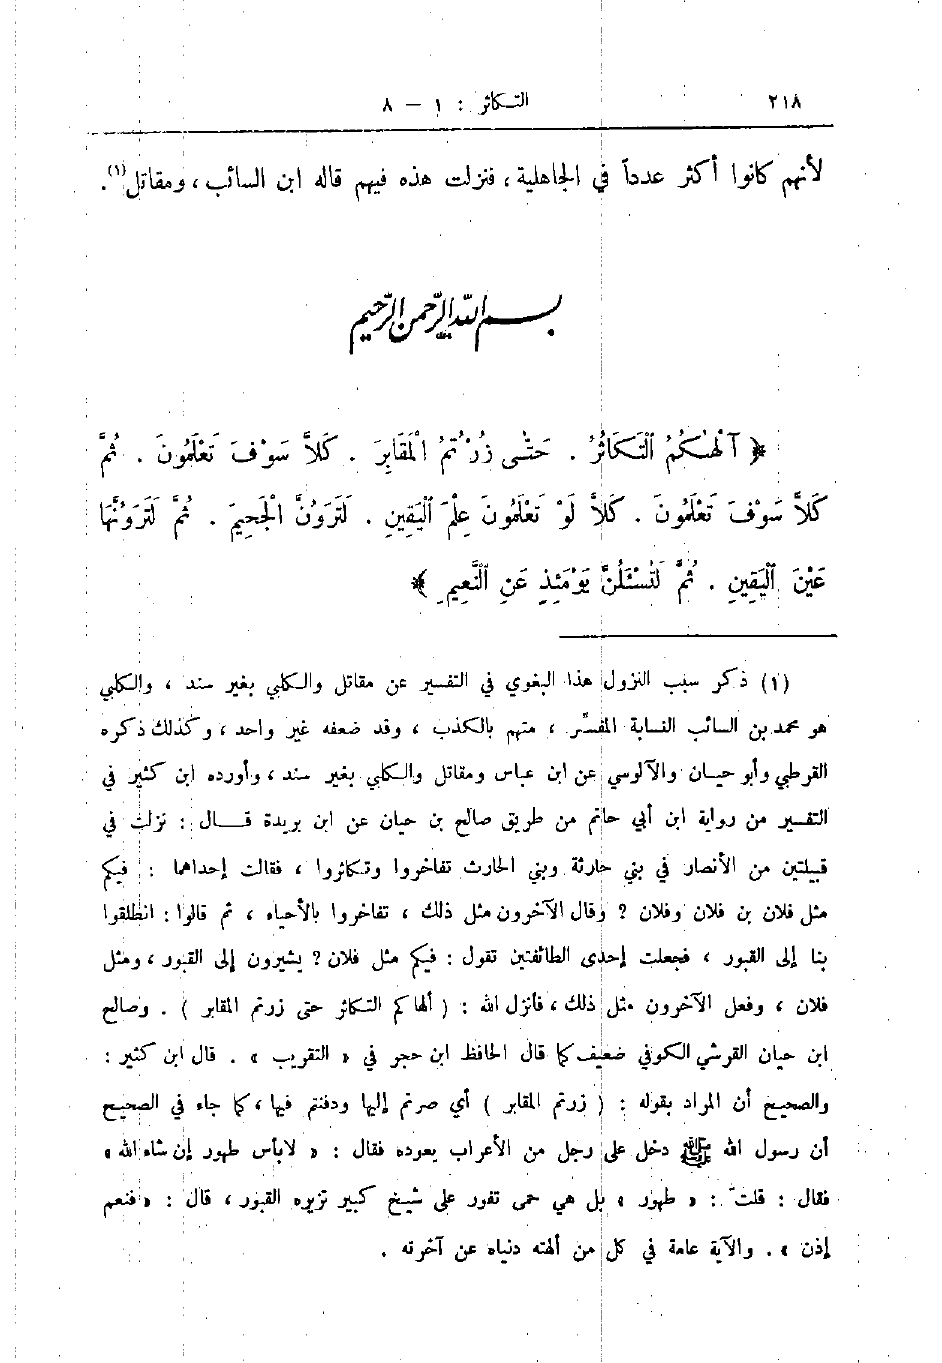 ٢١٨ التكاثر : ١ – ٨
لأنهم كانوا أكثر عدداً في الجاهلية ، فنزلت هذه فيهم قاله ابن السائب ، ومقاتل(١).
بسم الله الرحمن الرحيم
﴿ أَلْهٰكُمُ ٱلتَّكَاثُرُ . حَتَّى زُرْتُمُ الْمَقَابِرَ . كَلاَّ سَوْفَ تَعْلَمُونَ . ثُمَّ
كَلاَّ سَوْفَ تَعْلَمُونَ . كَلاَّ لَوْ تَعْلَمُونَ عِلْمَ ٱلْيَقِينِ . لَتَرَوُنَّ الْجَحِيمَ . ثُمَّ لَتَرَوُنَّهَا
عَيْنَ ٱلْيَقِينِ . ثُمَّ لَتُسْئَلُنَّ يَوْمَئِذٍ عَنِ ٱلنَّعِيمِ ﴾
(١) ذكر سبب النزول هذا البغوي في التفسير عن مقاتل والكلبي بغير سند ، والكلبي
هو محمد بن السائب النسابة المفسِّر ، متهم بالكذب ، وقد ضعفه غير واحد ، وكذلك ذكره
القرطبي وأبو حيان والآلوسي عن ابن عباس ومقاتل والكلبي بغير سند ، وأورده ابن كثير في
التفسير من رواية ابن أبي حاتم من طريق صالح بن حيان عن ابن بريدة قال : نزلت في
قبيلتين من الأنصار في بني حارثة وبني الحارث تفاخروا وتكاثروا ، فقالت إحداهما : فيكم
مثل فلان بن فلان وفلان ؟ وقال الآخرون مثل ذلك ، تفاخروا بالأحياء ، ثم قالوا : انطلقوا
بنا إلى القبور ، فجعلت إحدى الطائفتين تقول : فيكم مثل فلان ؟ يشيرون إلى القبور ، ومثل
فلان ، وفعل الآخرون مثل ذلك ، فأنزل الله : ( ألهاكم التكاثر حتى زرتم المقابر ) . وصالح
ابن حيان القرشي الكوفي ضعيف كما قال الحافظ ابن حجر في « التقريب » . قال ابن كثير :
والصحيح أن المراد بقوله : ( زرتم المقابر ) أي صرتم إليها ودفنتم فيها ، كما جاء في الصحيح
أن رسول الله ﷺ دخل على رجل من الأعراب يعوده فقال : « لابأس طهور إن شاء الله »
فقال : قلت : « طهور » بل هي حمى تفور على شيخ كبير تزيره القبور ، قال : « فنعم
إذن » . والآية عامة في كل من ألهته دنياه عن آخرته .